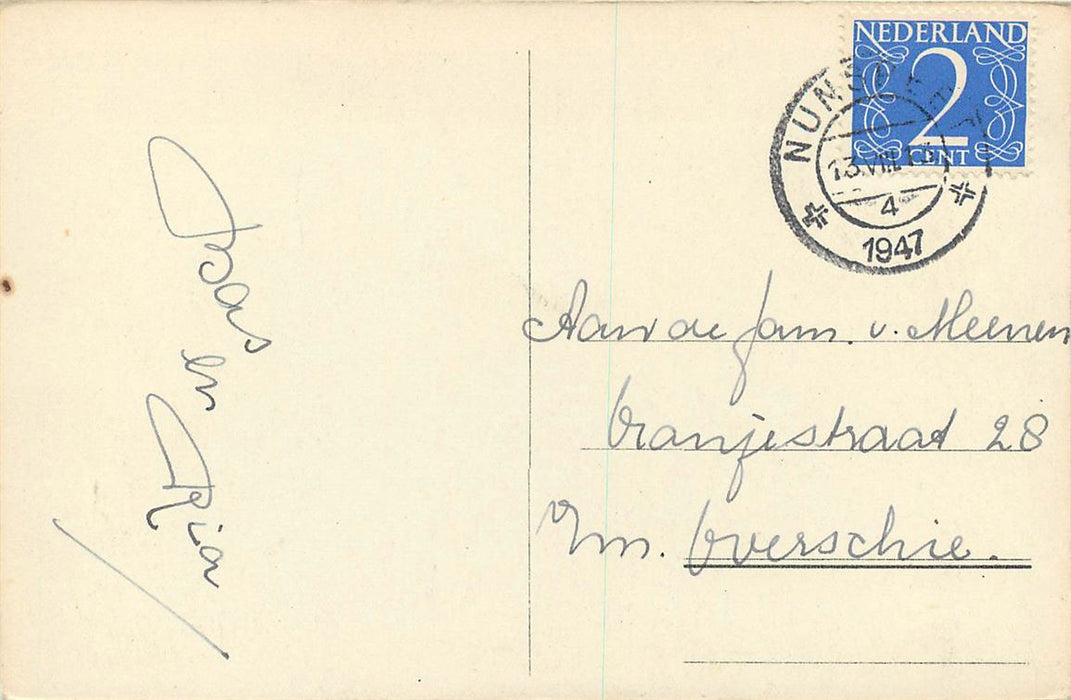 Bas
en
Ria
NEDERLAND
2
CENT
4
1947
Aan de fam. v. Meenen
Oranjestraat 28
Overschie.